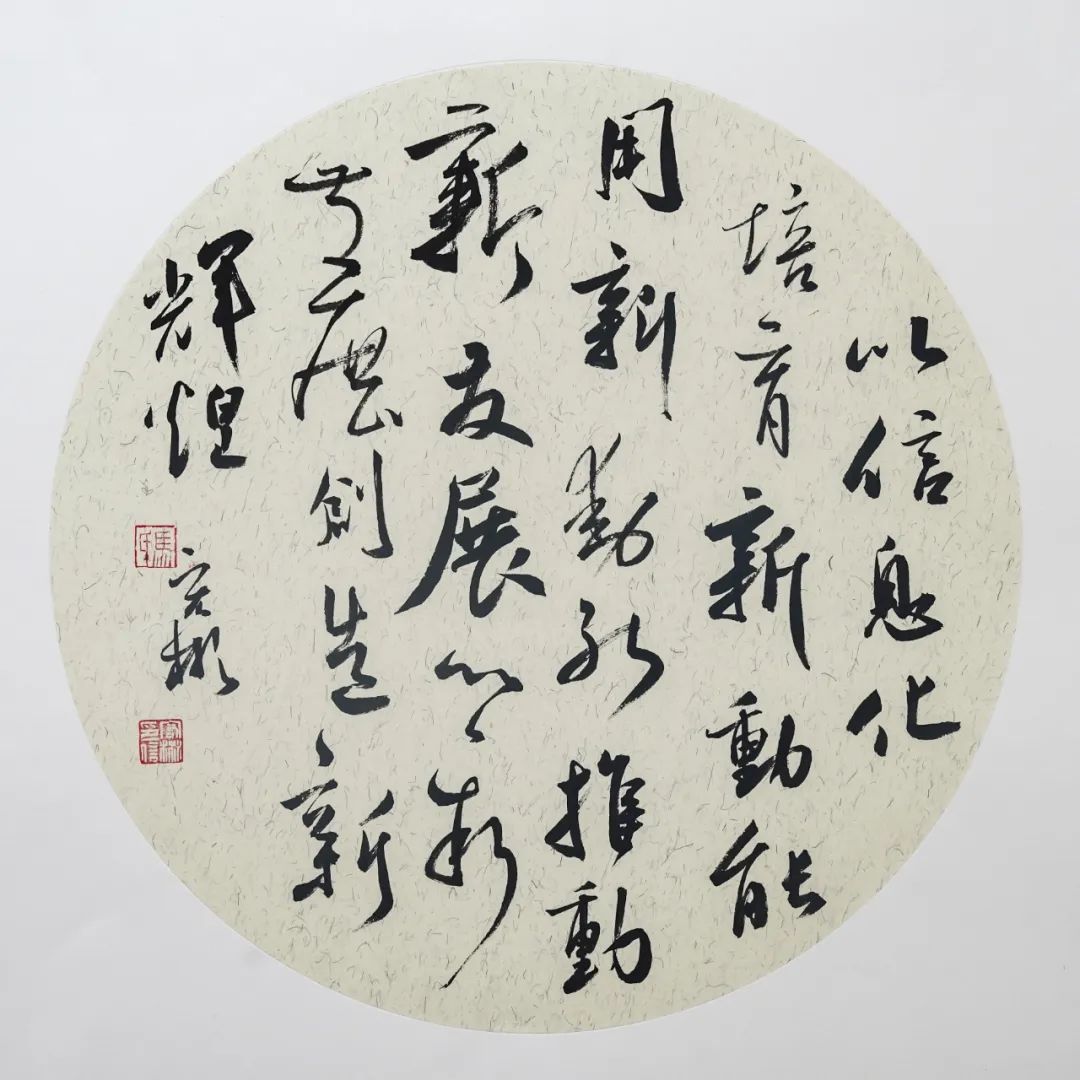 以信息化
培育新動能
用新動能推動
新发展以新
發展創造新
輝煌
馬氏